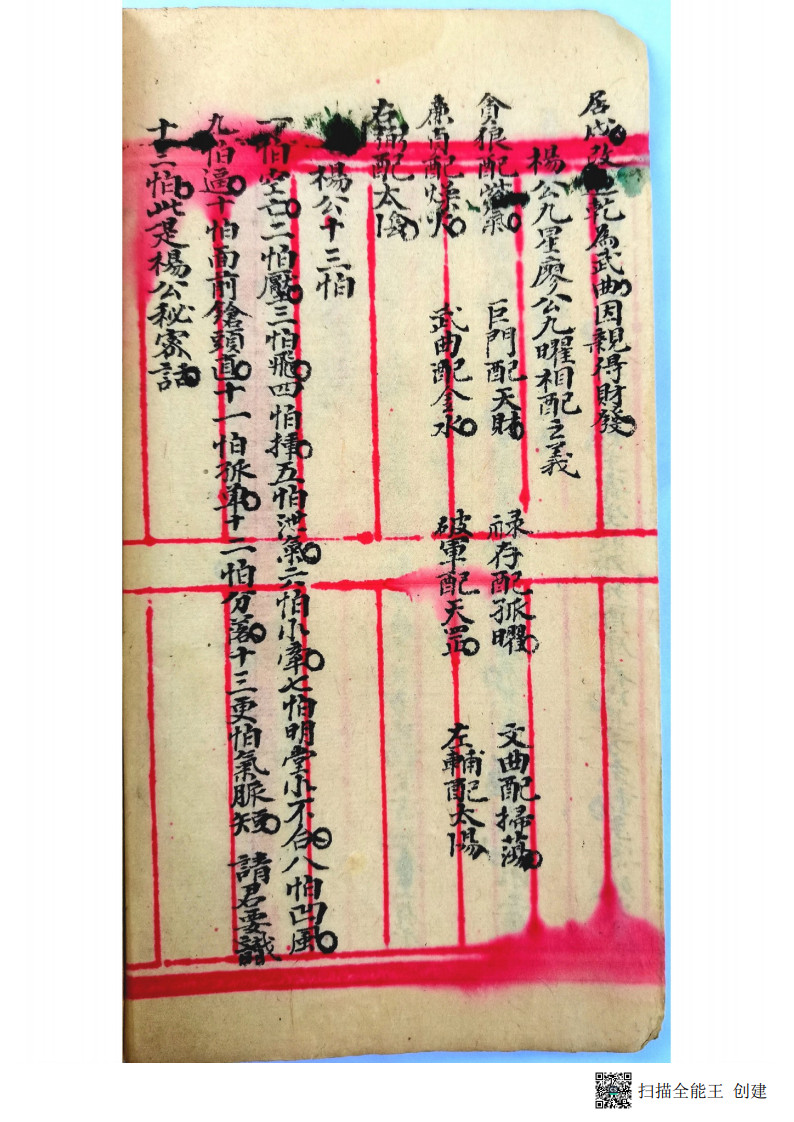 居戌改乾為武曲因親得財發
楊公九星廖公九曜相配之義
貪狼配紫氣 巨門配天財 祿存配孤曜 文曲配掃蕩
廉貞配燥火 武曲配金水 破軍配天罡 左輔配太陽
右弼配太陰
楊公十三怕
一怕空亡二怕壓三怕飛四怕揷五怕洩氣六怕小牽七怕明堂小不合八怕凹風
九怕逼十怕面前鎗頭直十一怕孤单十二怕分落十三更怕氣脈短 請君要識
十三怕此是楊公秘密話
扫描全能王 创建